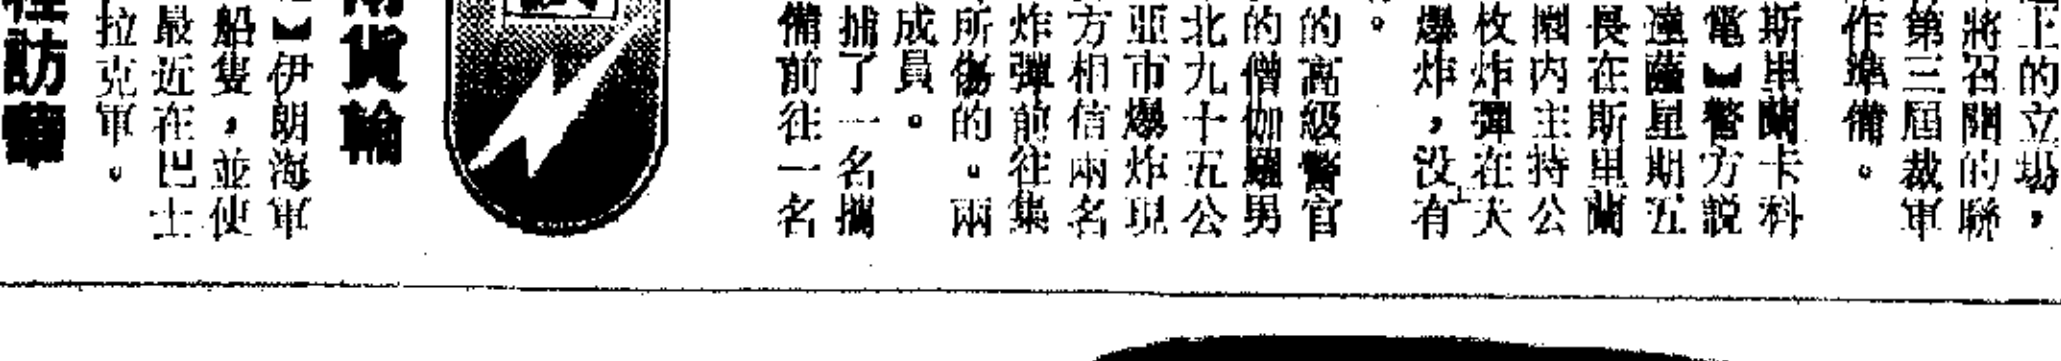 上的立場，
將召開的聯
第三屆裁軍
作準備。
斯里蘭卡科
電】警方說
達薩星期五
長在斯里蘭
園内主持公
枚炸彈在大
爆炸，没有
。
的高級警官
的僧伽羅男
北九十五公
亞市爆炸現
方相信兩名
炸彈前往集
所傷的。兩
成員。
捕了一名攜
備前往一名
兩貨輪
】伊朗海軍
船隻，並使
最近在巴士
拉克軍。
程訪華